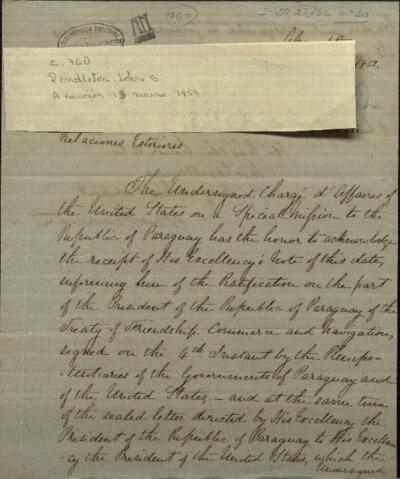 760
I-29,27,
1853.
C. 760
Pendleton, John S
Asunción 13 marzo 1853
Relaciones Esteriores
The Undersigned Chargé d'Affaires of
the United States on a Special Mission to the
Republic of Paraguay has the honor to acknowledge
the receipt of His Excellency's Note of this date,
informing him of the Ratification on the part
of the President of the Republic of Paraguay of the
Treaty of Friendship Commerce and Navigation,
signed on the 4th Instant by the Plenipo-
tentiaries of the Governments of Paraguay and
of the United States, - and at the same time
of the sealed letter directed by His Excellency the
President of the Republic of Paraguay to His Excellen
-cy the President of the United States, which the
Undersigned